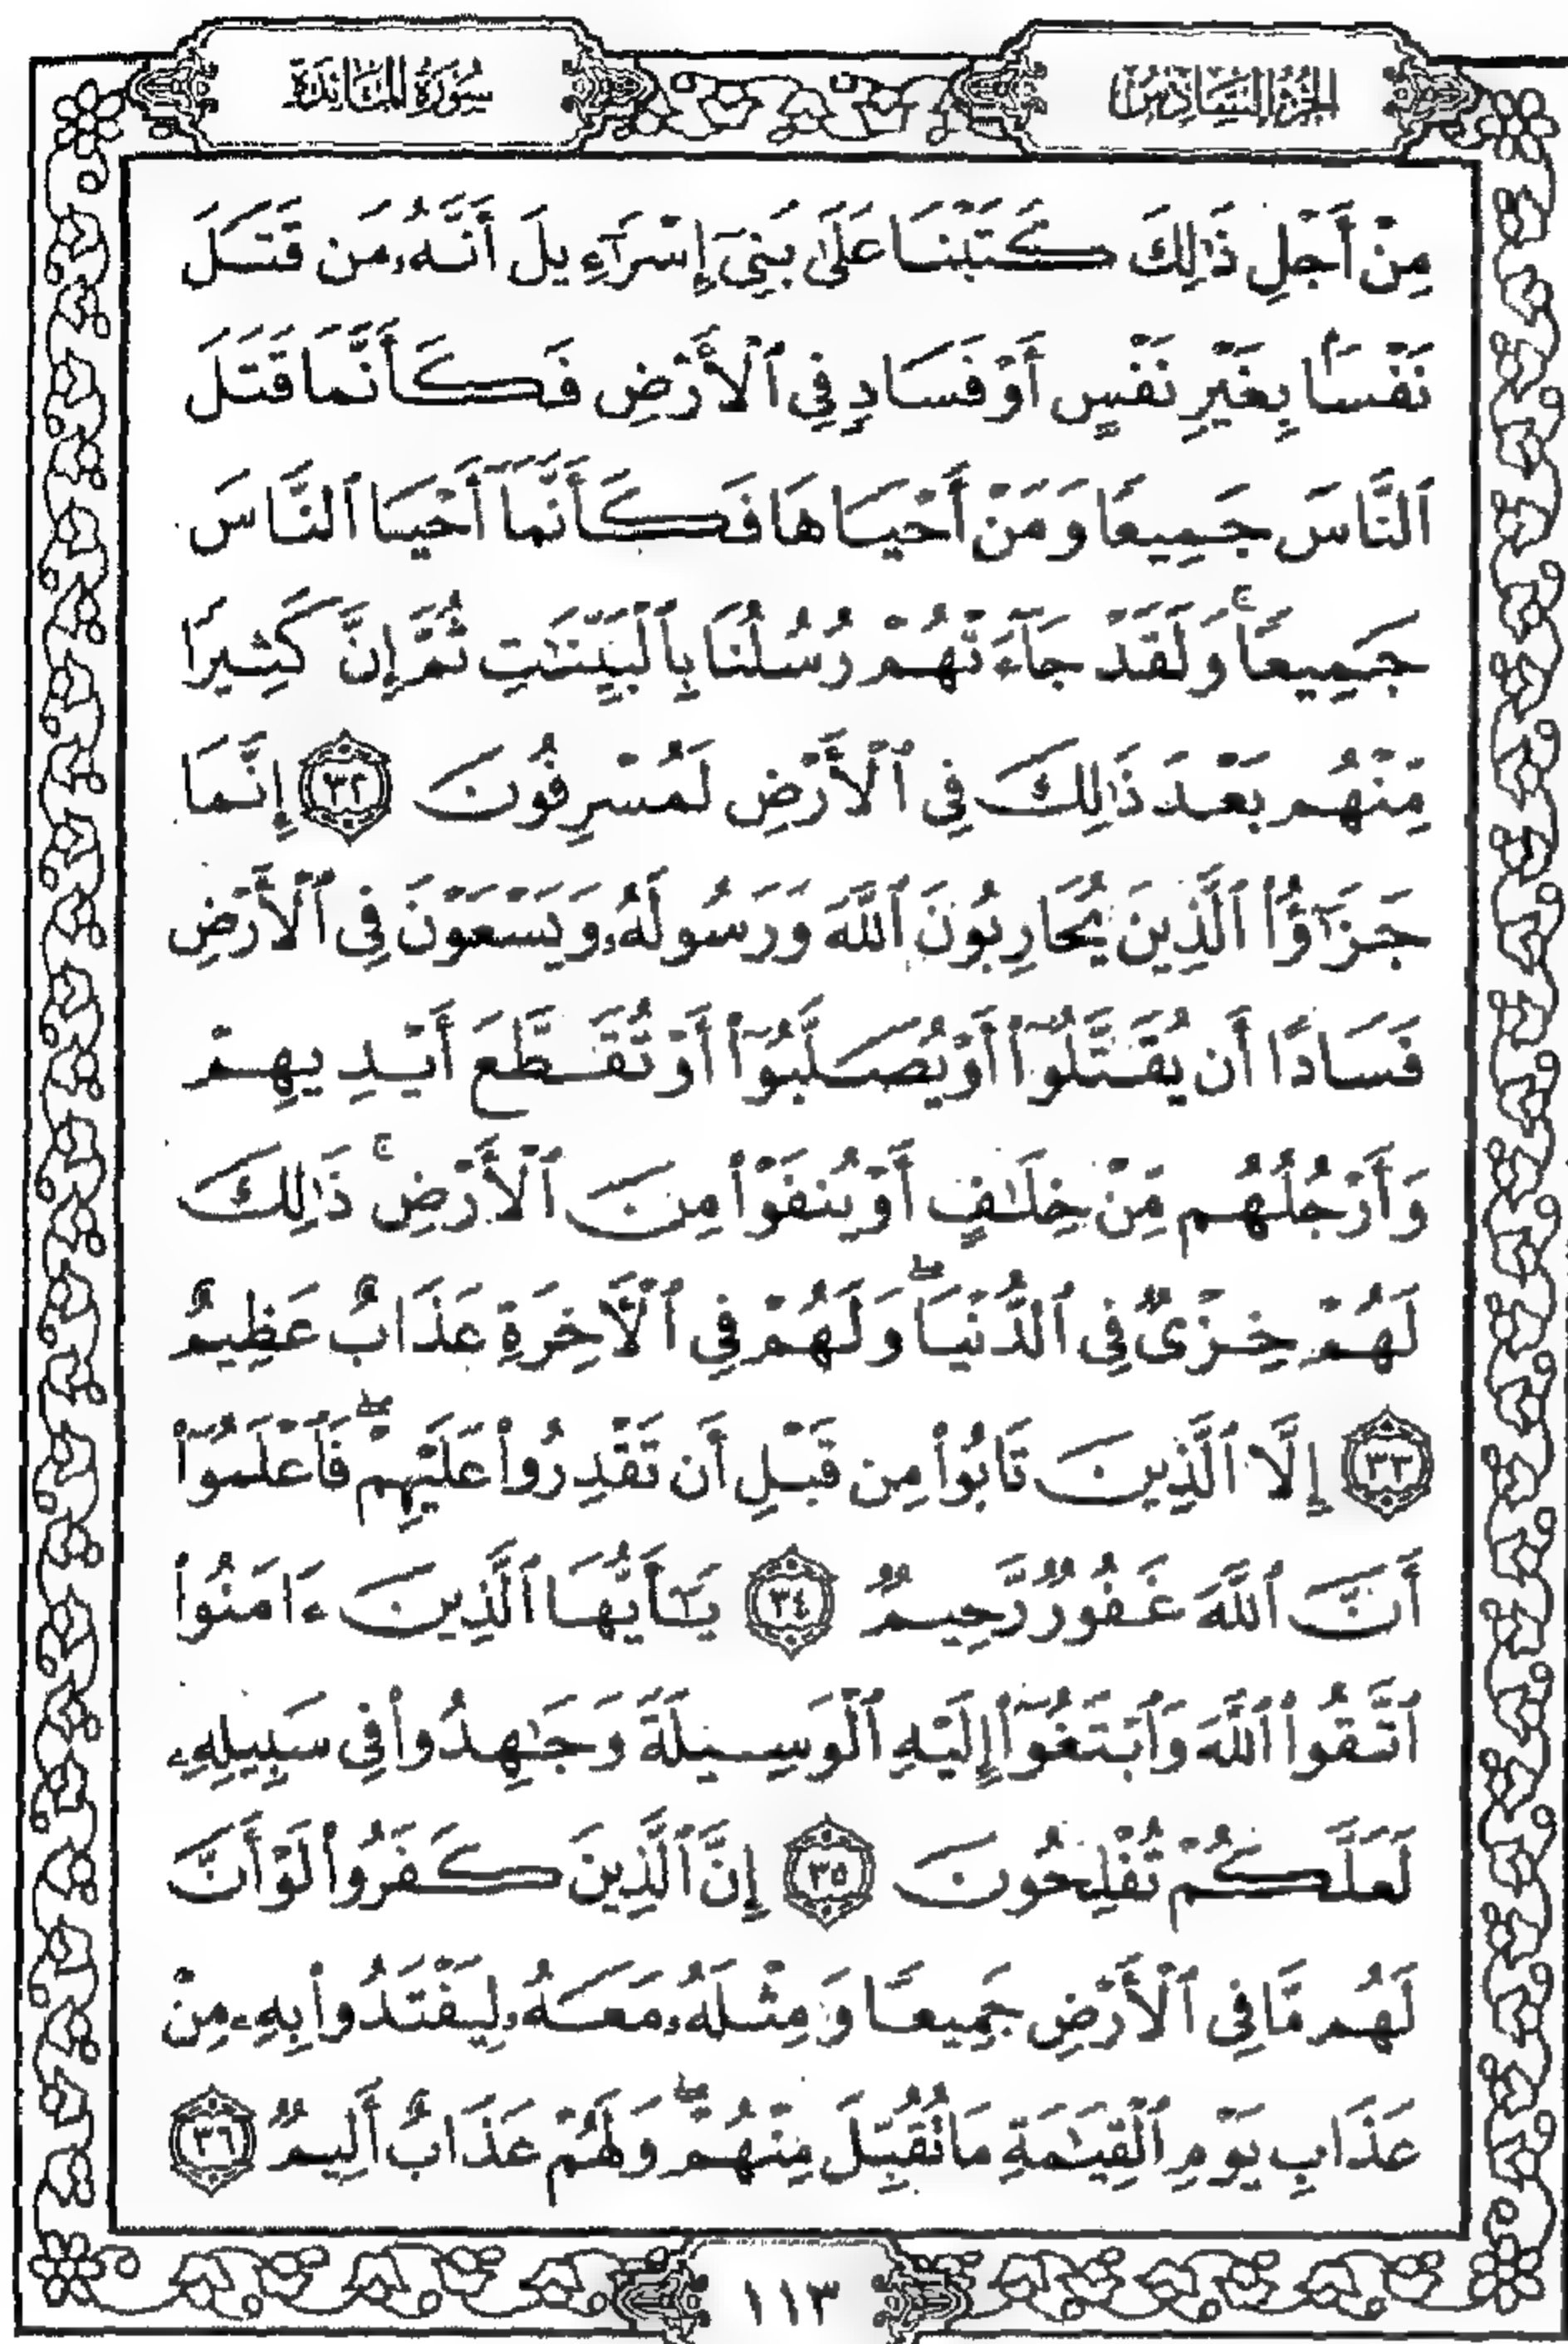 الجزء السادس
سورة المائدة
مِنْ أَجْلِ ذَٰلِكَ كَتَبْنَا عَلَىٰ بَنِىٓ إِسْرَٰٓءِيلَ أَنَّهُۥ مَن قَتَلَ
نَفْسًۢا بِغَيْرِ نَفْسٍ أَوْ فَسَادٍ فِى ٱلْأَرْضِ فَكَأَنَّمَا قَتَلَ
ٱلنَّاسَ جَمِيعًا وَمَنْ أَحْيَاهَا فَكَأَنَّمَآ أَحْيَا ٱلنَّاسَ
جَمِيعًا ۚ وَلَقَدْ جَآءَتْهُمْ رُسُلُنَا بِٱلْبَيِّنَٰتِ ثُمَّ إِنَّ كَثِيرًا
مِّنْهُم بَعْدَ ذَٰلِكَ فِى ٱلْأَرْضِ لَمُسْرِفُونَ ٣٢ إِنَّمَا
جَزَٰٓؤُا۟ ٱلَّذِينَ يُحَارِبُونَ ٱللَّهَ وَرَسُولَهُۥ وَيَسْعَوْنَ فِى ٱلْأَرْضِ
فَسَادًا أَن يُقَتَّلُوٓا۟ أَوْ يُصَلَّبُوٓا۟ أَوْ تُقَطَّعَ أَيْدِيهِمْ
وَأَرْجُلُهُم مِّنْ خِلَٰفٍ أَوْ يُنفَوْا۟ مِنَ ٱلْأَرْضِ ۚ ذَٰلِكَ
لَهُمْ خِزْىٌ فِى ٱلدُّنْيَا ۖ وَلَهُمْ فِى ٱلْأَخِرَةِ عَذَابٌ عَظِيمٌ
٣٣ إِلَّا ٱلَّذِينَ تَابُوا۟ مِن قَبْلِ أَن تَقْدِرُوا۟ عَلَيْهِمْ ۖ فَٱعْلَمُوٓا۟
أَنَّ ٱللَّهَ غَفُورٌ رَّحِيمٌ ٣٤ يَٰٓأَيُّهَا ٱلَّذِينَ ءَامَنُوا۟
ٱتَّقُوا۟ ٱللَّهَ وَٱبْتَغُوٓا۟ إِلَيْهِ ٱلْوَسِيلَةَ وَجَٰهِدُوا۟ فِى سَبِيلِهِۦ
لَعَلَّكُمْ تُفْلِحُونَ ٣٥ إِنَّ ٱلَّذِينَ كَفَرُوا۟ لَوْ أَنَّ
لَهُم مَّا فِى ٱلْأَرْضِ جَمِيعًا وَمِثْلَهُۥ مَعَهُۥ لِيَفْتَدُوا۟ بِهِۦ مِنْ
عَذَابِ يَوْمِ ٱلْقِيَٰمَةِ مَا تُقُبِّلَ مِنْهُمْ ۖ وَلَهُمْ عَذَابٌ أَلِيمٌ ٣٦
١١٣